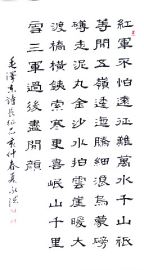 紅軍不怕遠征難萬水千山祇
等閒五嶺逶迤騰細浪烏蒙磅
礴走泥丸金沙水拍雲崖暖大
渡橋橫鐵索寒更喜岷山千里
雪三軍過後盡開顏
毛澤東詩長征仲春